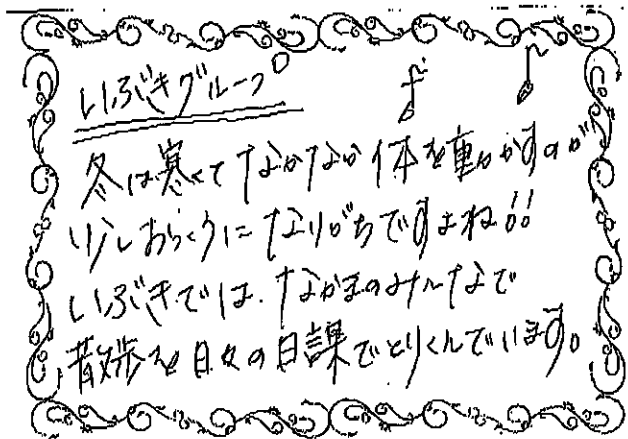 いぶきグループ
冬は寒くてなかなか体を動かすのが
少しおっくうになりがちですよね!!
いぶきでは、なかまのみんなで
散歩を日々の日課でとりくんでいます。